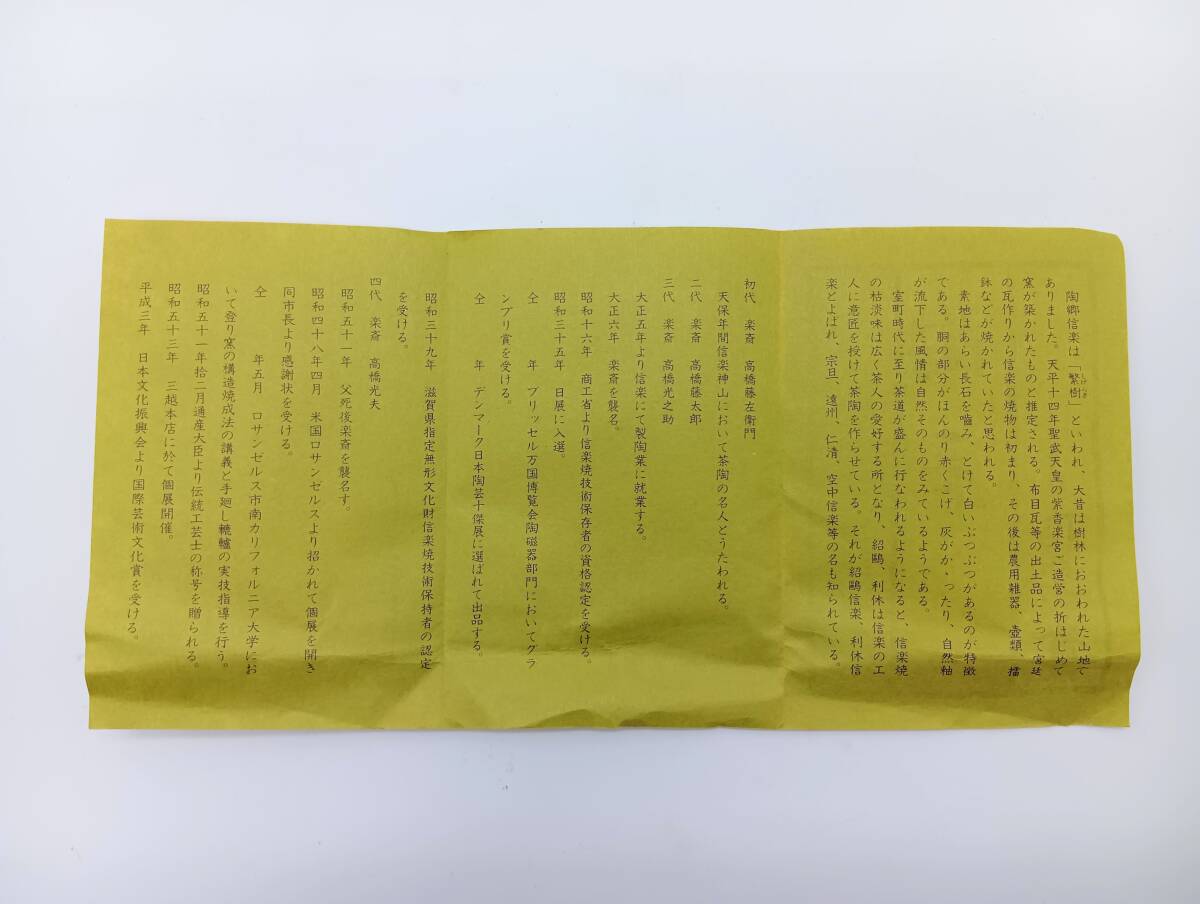 陶郷信楽は「繁樹」といわれ、大昔は樹林におおわれた山地で
ありました。天平十四年聖武天皇の紫香楽宮ご造営の折はじめて
窯が築かれたものと推定される。布目瓦等の出土品によって宮廷
の瓦作りから信楽の焼物は初まり、その後は農用雑器、壺類、擂
鉢などが焼かれていたと思われる。
素地はあらい長石を嚙み、とけて白いぶつぶつがあるのが特徴
である。胴の部分がほんのり赤くこげ、灰がか・ったり、自然釉
が流下した風情は自然そのものをみているようである。
室町時代に至り茶道が盛んに行なわれるようになると、信楽焼
の枯淡味は広く茶人の愛好する所となり、紹鷗、利休は信楽の工
人に意匠を授けて茶陶を作らせている。それが紹鷗信楽、利休信
楽とよばれ、宗旦、遠州、仁清、空中信楽等の名も知られている。
初代 楽斎 高橋藤左衛門
天保年間信楽神山において茶陶の名人とうたわれる。
二代 楽斎 高橋藤太郎
三代 楽斎 高橋光之助
大正五年より信楽にて製陶業に就業する。
大正六年 楽斎を襲名。
昭和十六年 商工省より信楽焼技術保存者の資格認定を受ける。
昭和三十五年 日展に入選。
仝 年 ブリッセル万国博覧会陶磁器部門においてグラ
ンプリ賞を受ける。
仝 年 デンマーク日本陶芸十傑展に選ばれて出品する。
昭和三十九年 滋賀県指定無形文化財信楽焼技術保持者の認定
を受ける。
四代 楽斎 高橋光夫
昭和五十一年 父死後楽斎を襲名す。
昭和四十八年四月 米国ロサンゼルスより招かれて個展を開き
同市長より感謝状を受ける。
仝 年五月 ロサンゼルス市南カリフォルニア大学にお
いて登り窯の構造焼成法の講義と手廻し轆轤の実技指導を行う。
昭和五十一年拾二月通産大臣より伝統工芸士の称号を贈られる。
昭和五十三年 三越本店に於て個展開催。
平成三年 日本文化振興会より国際芸術文化賞を受ける。